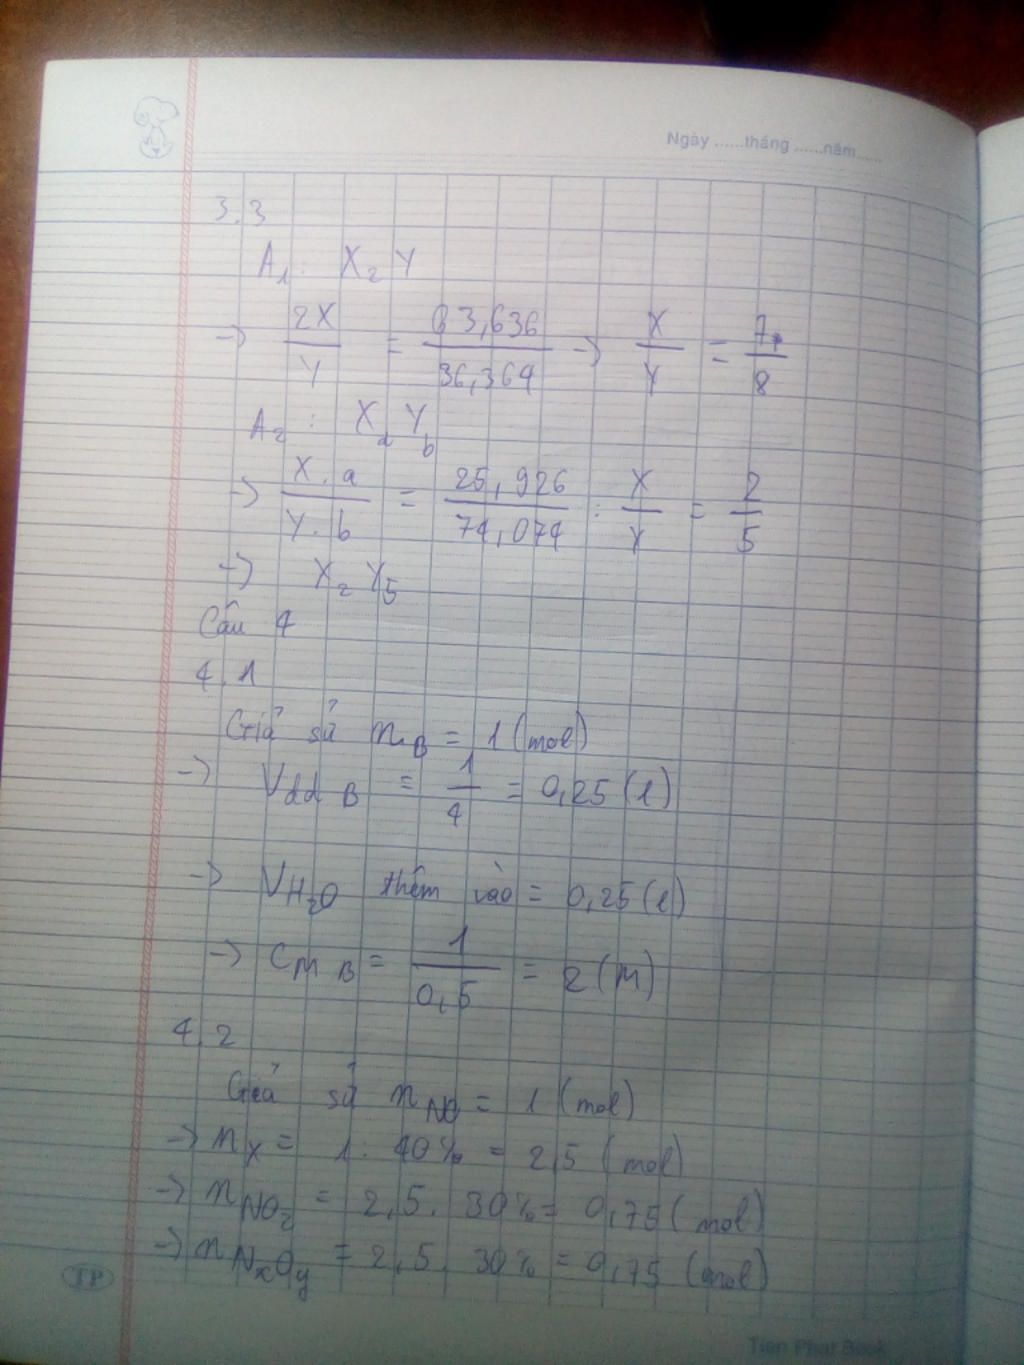 Ngày ......tháng ......năm......
3.3
A₁ : X₂ Y
→ 2X/Y = 63,636/36,364 → X/Y = 7/8
A₂ : XₐY_b
→ X.a/Y.b = 25,926/74,074 : X/Y = 2/5
→ X₂Y₅
Câu 4
4.1
Giả sử n_B = 1 (mol)
→ V_dd B = 1/4 = 0,25 (l)
→ V_H₂O thêm vào = 0,25 (l)
→ C_M B = 1/0,5 = 2 (M)
4.2
Giả sử n_NO = 1 (mol)
→ n_X = 1 : 40% = 2,5 (mol)
→ n_NO₂ = 2,5 . 30% = 0,75 (mol)
→ n_NxOy = 2,5 . 30% = 0,75 (mol)
TP
Tien Phat Book